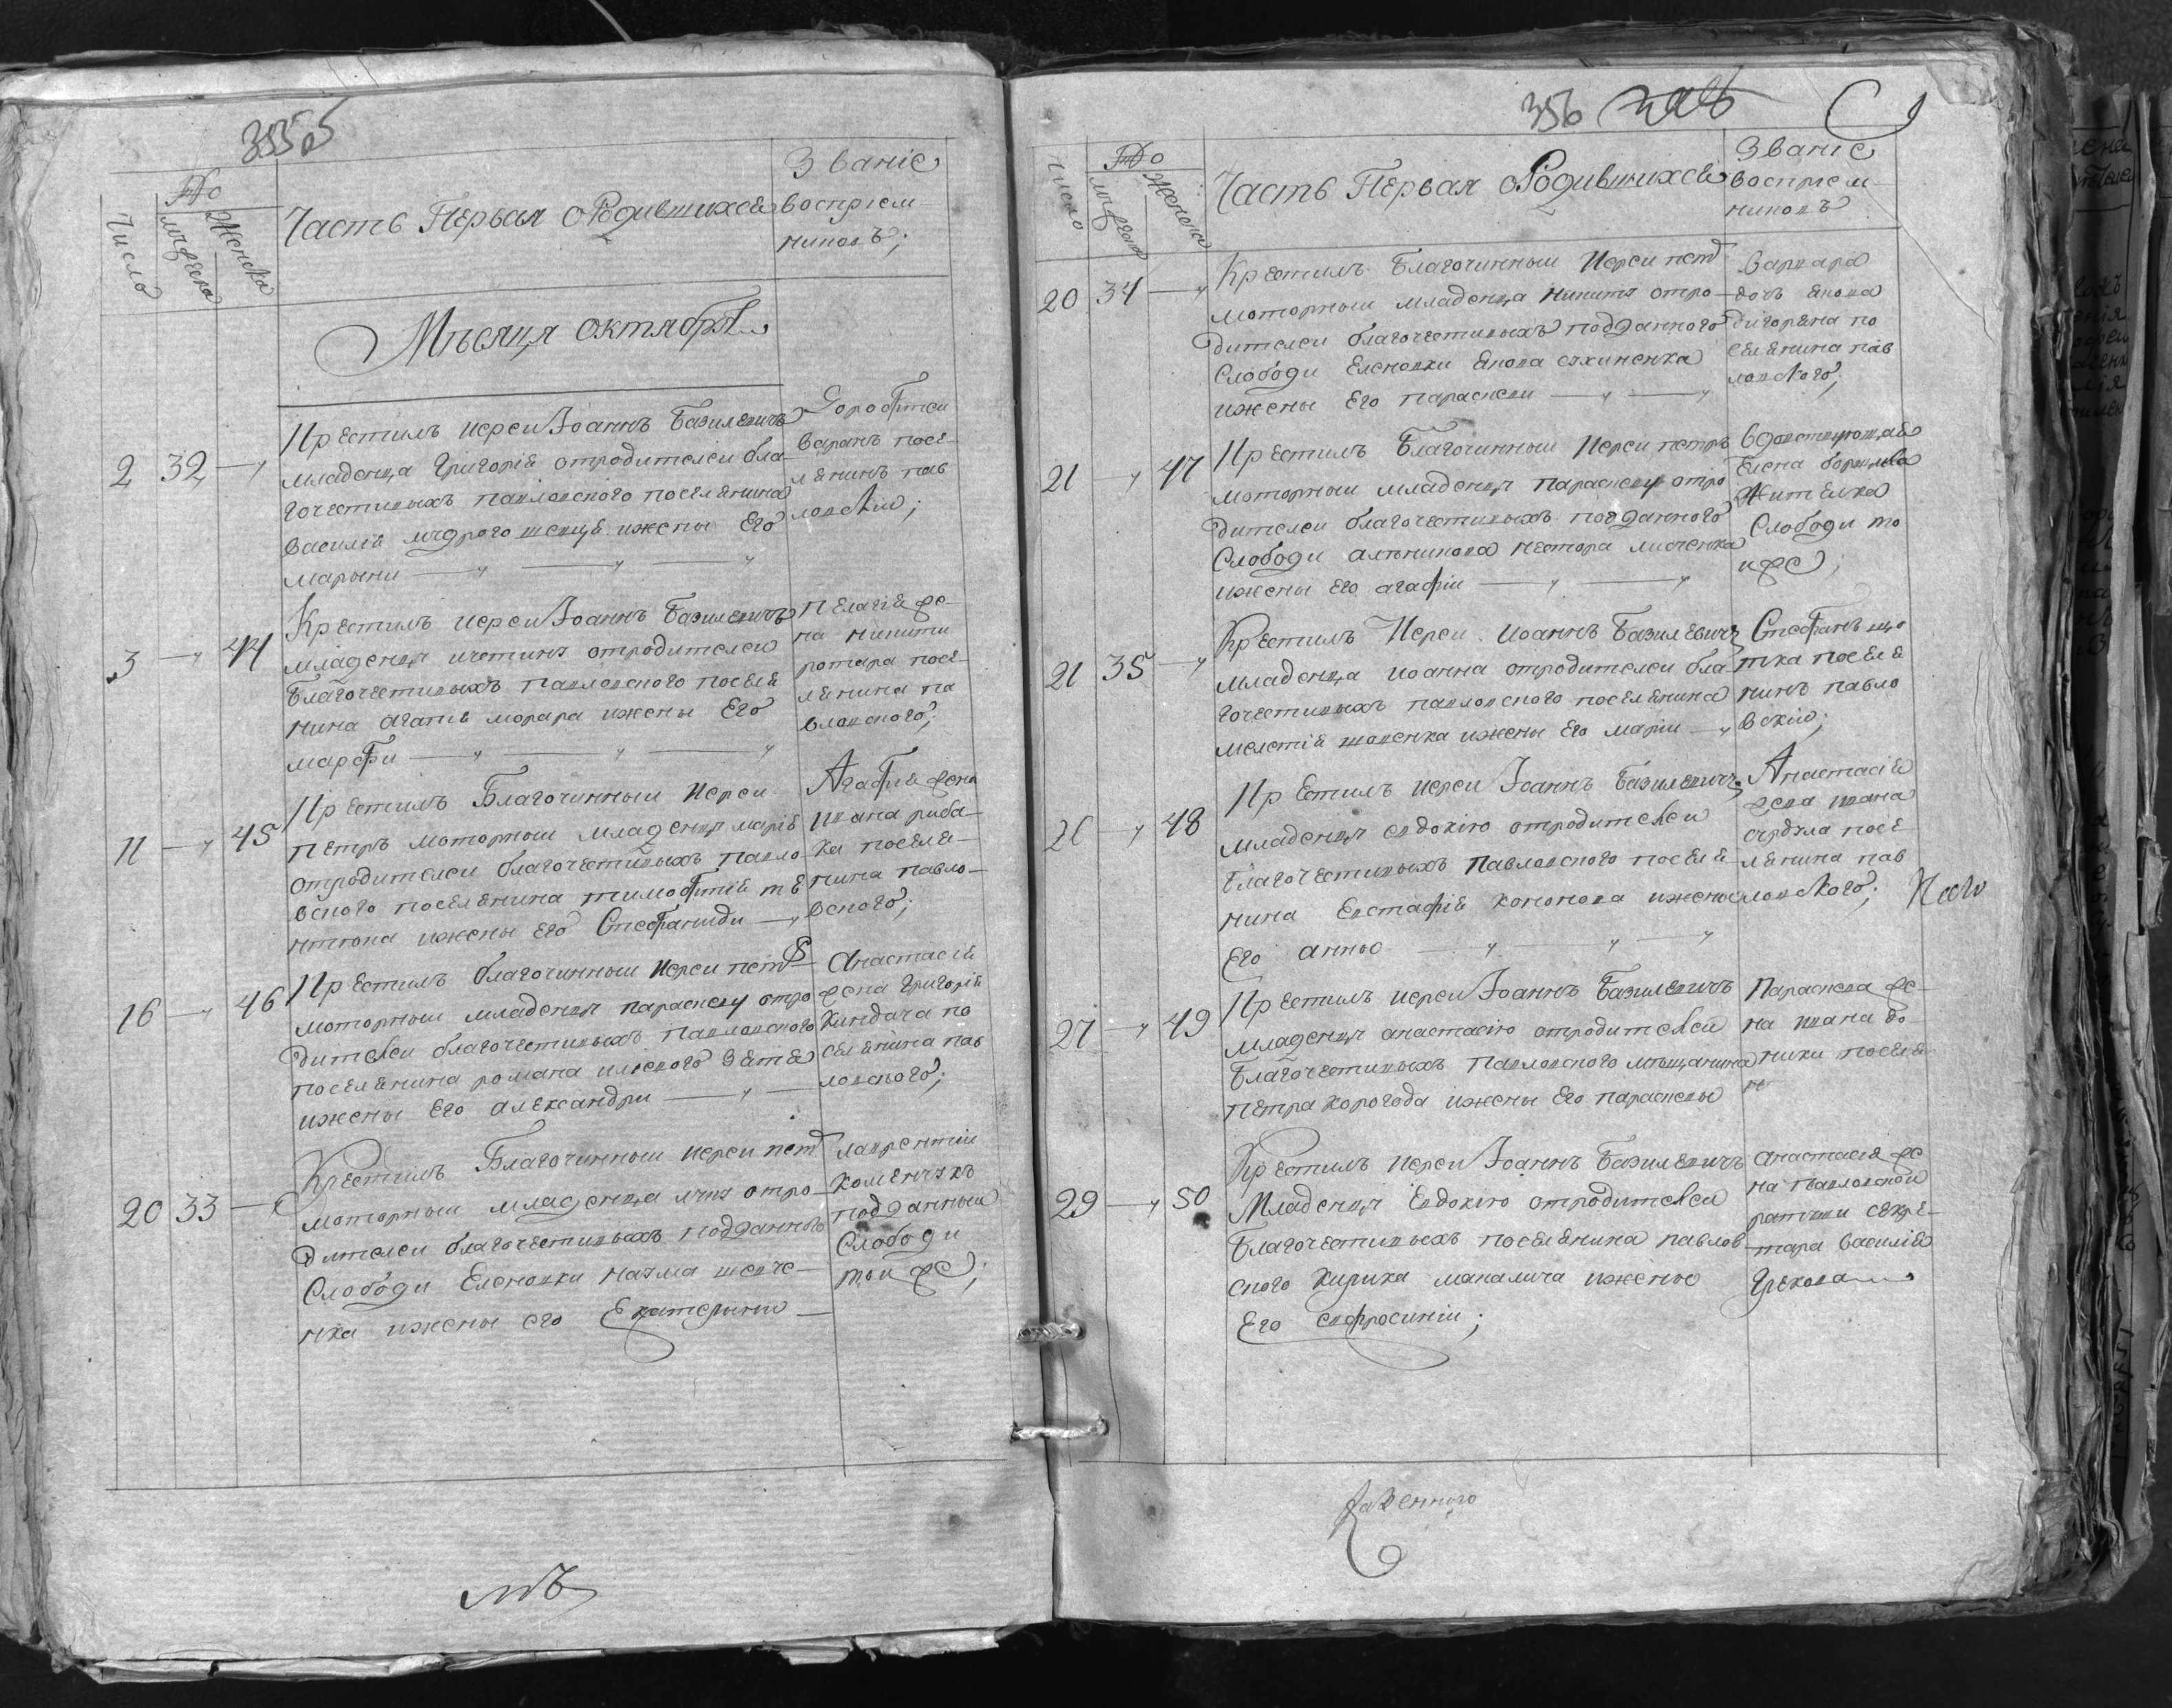 355
Число
Мужеска
Женска
Часть Первая о Родившихся
Званіе
воспріем
никовъ;
Мѣсяця октября
2 32
Крестилъ иереи Іоаннъ Базилевичъ
младенца Григорія отродителеи бла
гочестивыхъ павловского поселянина
василія мудрого шевця ижены Его
марыни
посе
лянинъ пав
ловскіи;
3 44
Крестилъ иереи Іоаннъ Базилевичъ
младенця отродителеи
Благочестивыхъ павловского поселя
нина морара ижены Его
марфи
Пелагія же
на никити
ротара посе
лянина па
вловского;
11 45
Крестилъ Благочинныи Иереи
Петръ моторныи младенця марію
отродителеи благочестивыхъ павло
вского поселянина тимофтія
ижены Его Стефаниди
Агафія жена
ивана риба
ка поселя
нина павло
вского;
16 46
Крестилъ благочинныи Иереи пет
моторныи младенця параскеву отро
дителеи благочестивыхъ павловского
поселянина романа зятя
ижены Его александри
Анастасія
жена Григорія
Киндача по
селянина пав
ловского;
20 33
Крестилъ Благочинныи иереи пет
моторныи младенца отро
дителеи благочестивыхъ подданныхъ
Слободи Еленовки наума шевче
нка ижены его Екатерыны
лаврентіи
подданныи
Слободи
тои же;
356
Число
Мужеска
Женска
Часть Первая о Родившихся
Званіе
воспріем
никовъ
20 34
Крестилъ Благочинныи Иереи пет
моторныи младенца никиту отро
дителеи благочестивыхъ подданного
Слободи Еленовки Якова
ижены Его параскеви
Варвара
дочь Якова
по
селянина пав
ловского;
21 47
Крестилъ Благочинныи Иереи петръ
моторныи младенця параскеву отро
дителеи благочестивыхъ подданного
Слободи нестора
ижены Его агафіи
вдовствующая
Елена
жителка
Слободи то
иже;
21 35
Крестилъ Иереи Иоаннъ Базилевичъ
младенца иоанна отродителеи бла
гочестивыхъ павловского поселянина
мелетія ижены Его маріи
Стефанъ
поселя
нинъ павло
вскіи;
26 48
Крестилъ иереи Іоаннъ Базилевичъ
младенця евдокію отродителеи
благочестивыхъ Павловского поселя
нина Евстафія кононова ижены
Его анны
Анастасія
жена ивана
посе
лянина пав
ловского;
27 49
Крестилъ иереи Іоаннъ Базилевичъ
младенця анастасію отродителеи
Благочестивыхъ Павловского мѣщанина
петра хорогода ижены Его параскевы
Параскева же
на ивана
поселя
н
29 50
Крестилъ иереи Іоаннъ Базилевичъ
Младенця Евдокію отродителеи
Благочестивыхъ поселянина павлов
ского Кирика ижены
Его евфросиніи;
Анастасія же
на павловской
ратуши секре
тара василія
Грекова